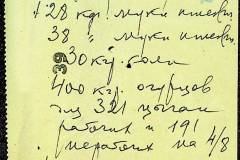 + 28 кгр. муки пшевн.
38 " муки пшевн.
39
30 кгр. соли
400 кгр. огурцов
на 321 цыган
рабочих и 191
нерабочих на 4/8